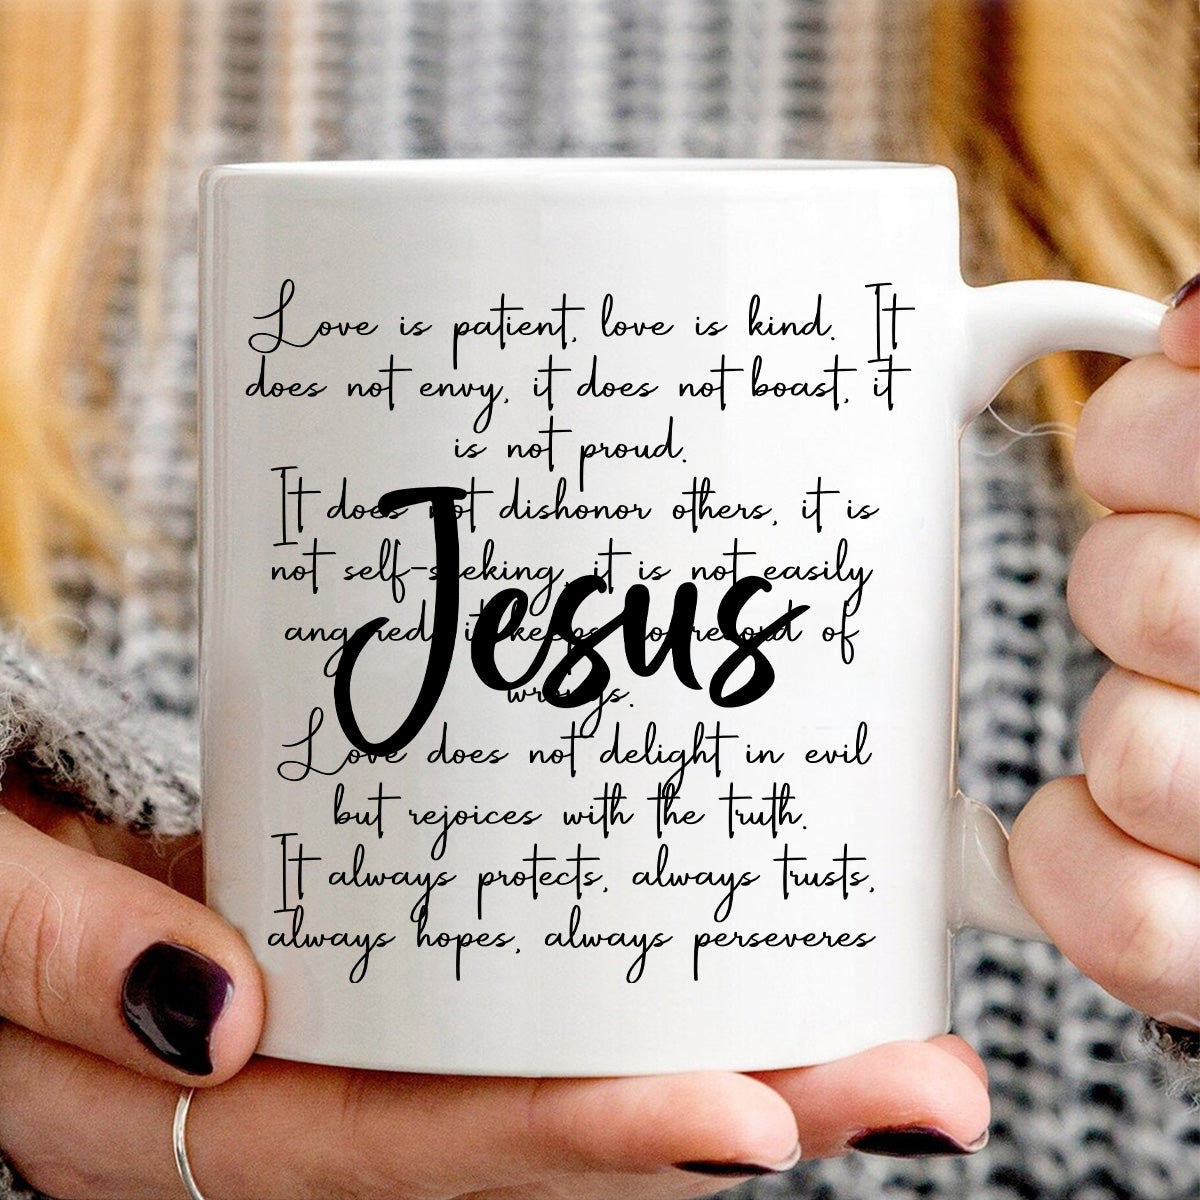 Love is patient, love is kind. It
does not envy, it does not boast, it
is not proud.
It does not dishonor others, it is
not self-seeking, it is not easily
angered, it keeps no record of
wrongs.
Jesus
Love does not delight in evil
but rejoices with the truth.
It always protects, always trusts,
always hopes, always perseveres